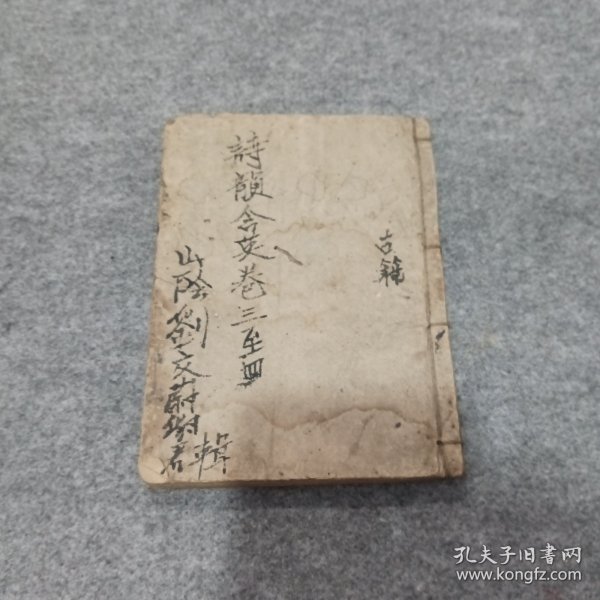 古籍
詩韻含英卷三至四
山陰劉文蔚豹君輯
孔夫子旧书网
www.kongfz.com